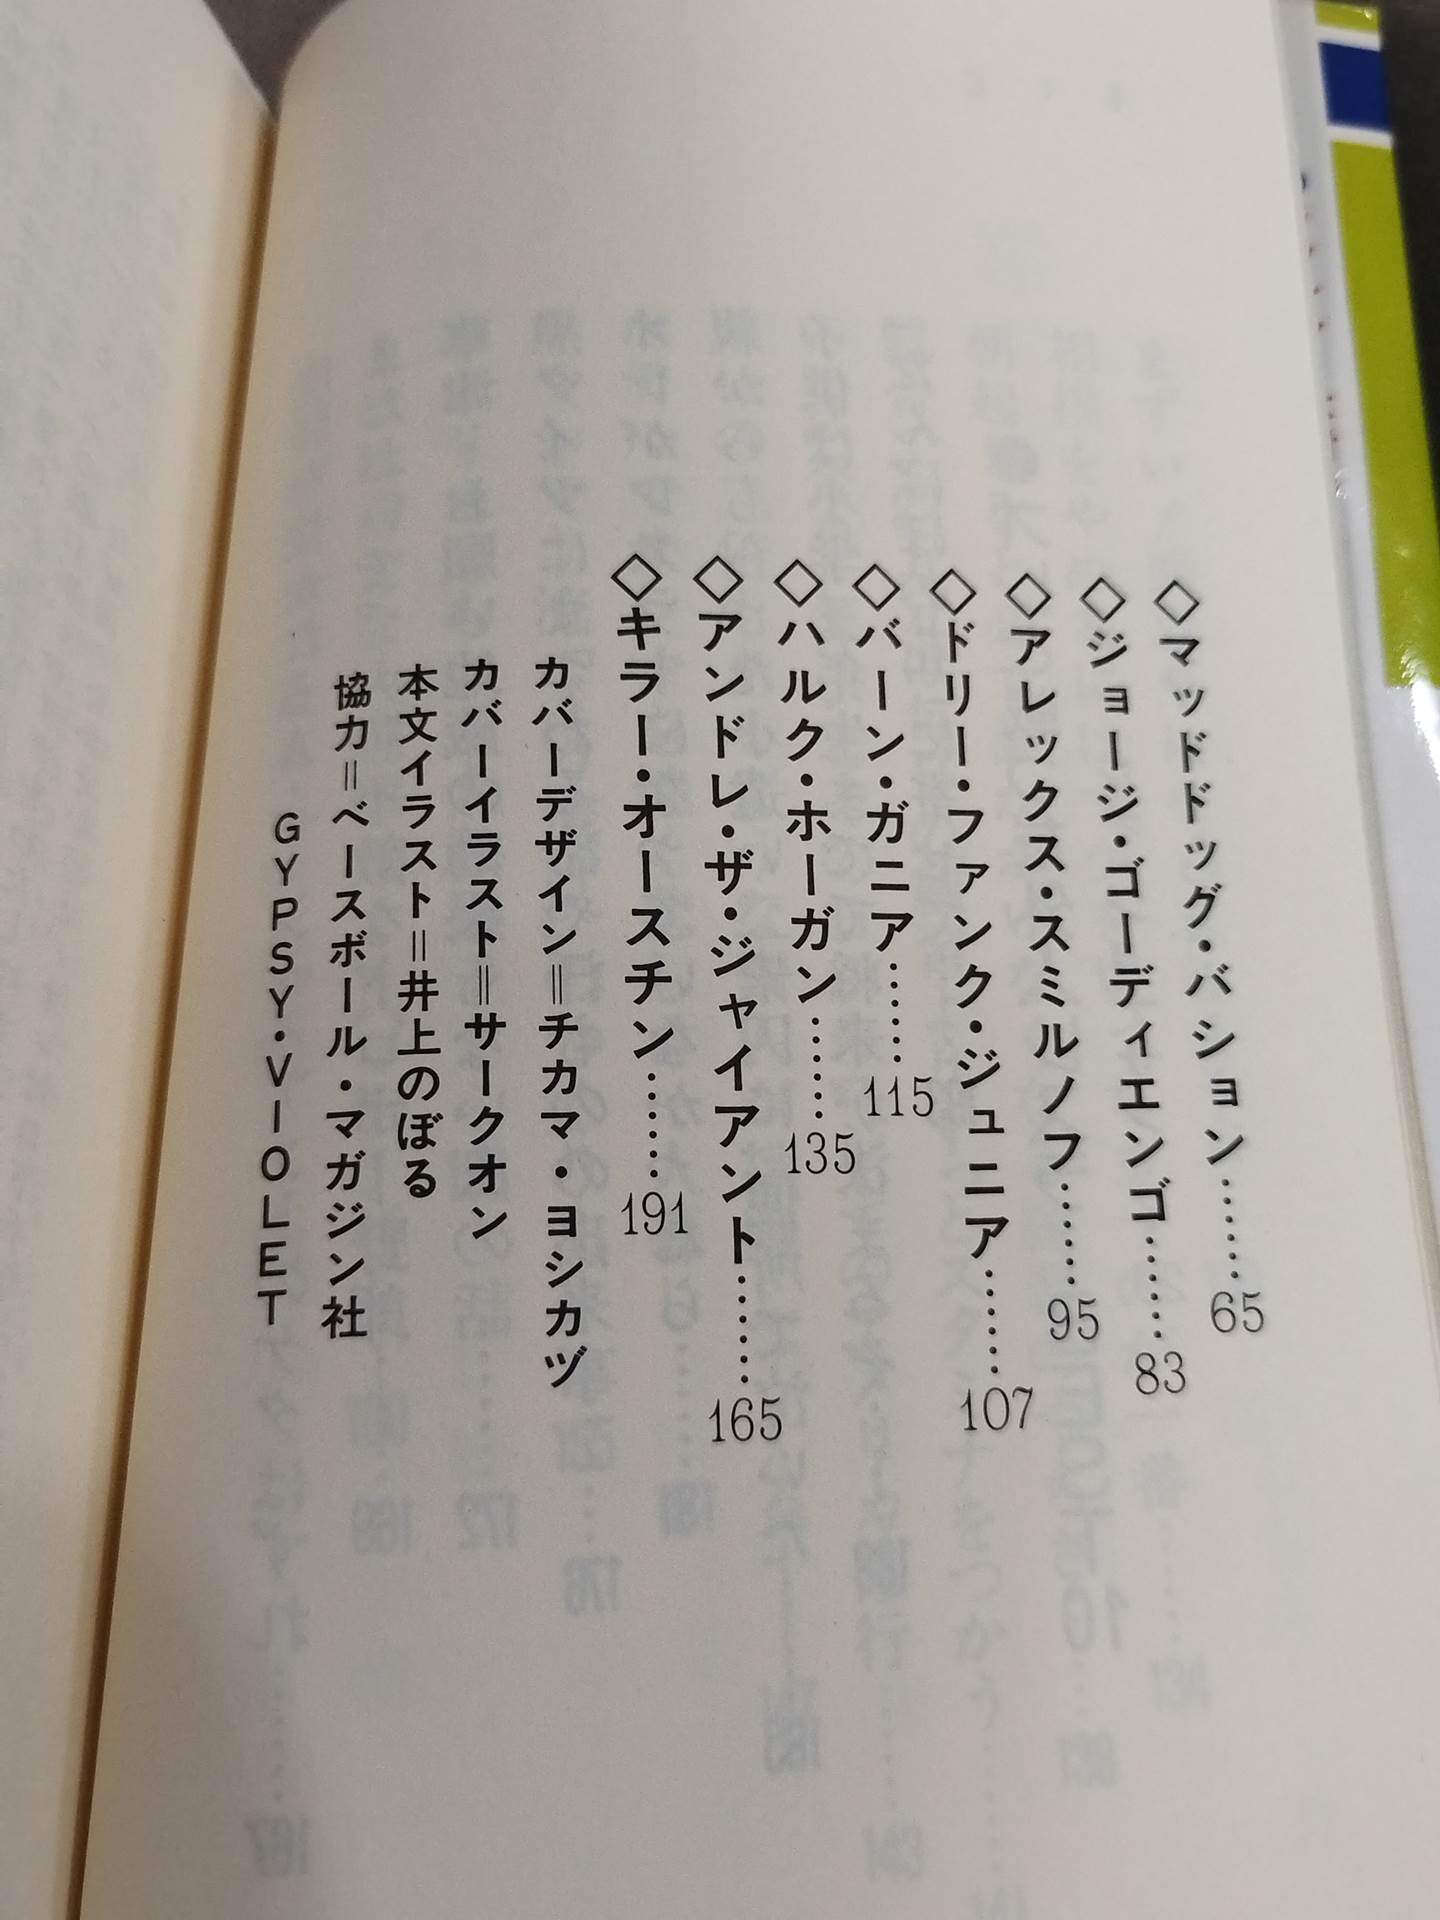 ◇マッドドッグ・バション……65
◇ジョージ・ゴーディエンゴ……83
◇アレックス・スミルノフ……95
◇ドリー・ファンク・ジュニア……107
◇バーン・ガニア……115
◇ハルク・ホーガン……135
◇アンドレ・ザ・ジャイアント……165
◇キラー・オースチン……191
カバーデザイン＝チカマ・ヨシカヅ
カバーイラスト＝サークオン
本文イラスト＝井上のぼる
協力＝ベースボール・マガジン社
GYPSY・VIOLET